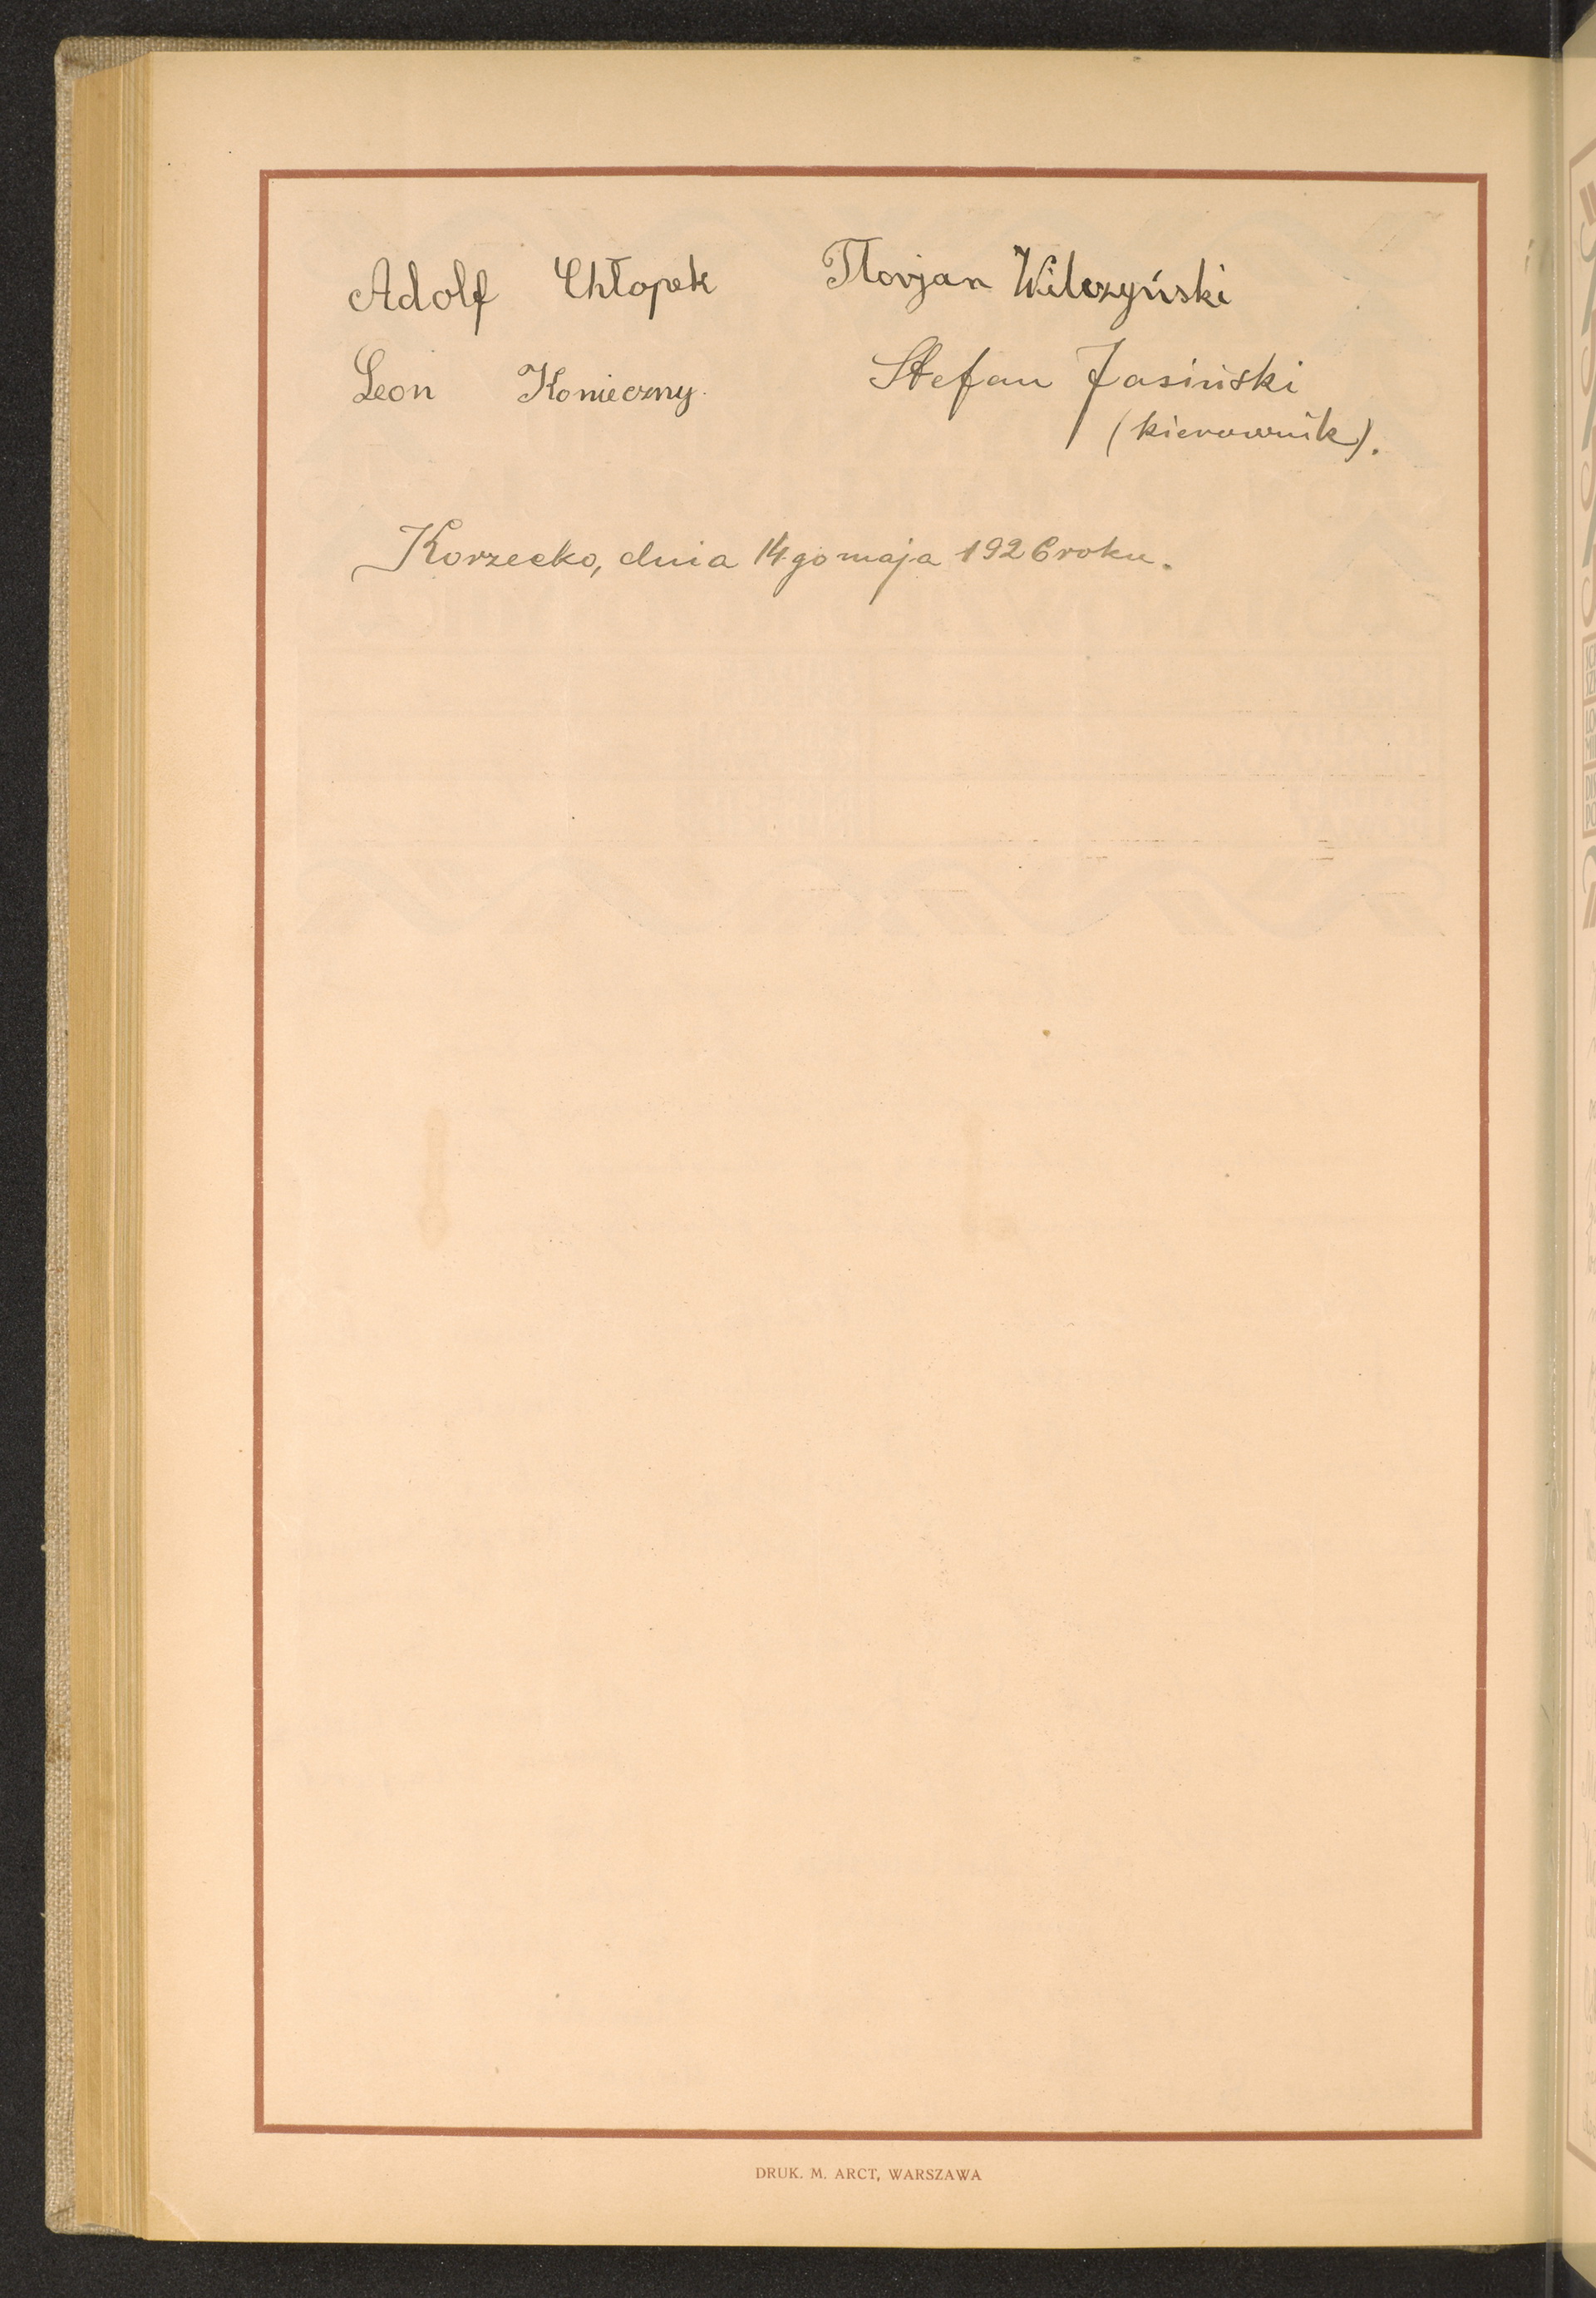 Adolf Chłopek Florjan Wilczyński
Leon Konieczny. Stefan Jasiński
(kierownik).
Korzecko, dnia 14go maja 1926 roku.
DRUK. M. ARCT, WARSZAWA